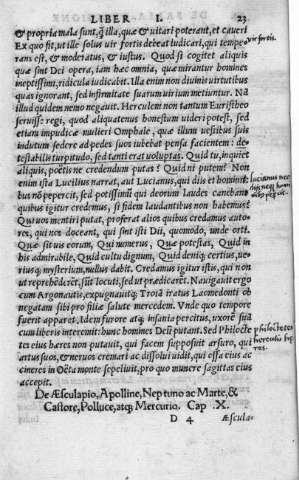 LIBER I. 23
& propria mala sunt, q̃ illa, quæ & vitari poterant, et caueri
Ex quo fit, ut ille solus uir fortis debeat iudicari, qui tempe
rans est, & moderatus, & iustus. Quod si cogitet aliquis
quæ sint Dei opera, iam hæc omnia, quæ mirantur homines
ineptissimi, ridicula iudicabit. Illa enim non diuinis uirtutibus
quas ignorant, sed infirmitate suarum uirium metiuntur. Nã
illud quidem nemo negauit. Herculem non tantum Euristheo
seruisse regi, quod aliquatenus honestum uideri potest, sed
etiam impudicæ mulieri Omphale, quæ illum uestibus suis
indutum sedere ad pedes suos iubebat pensa facientem: de-
testabilis turpitudo, sed tanti erat uoluptas. Quid tu, inquiet
aliquis, poëtis ne credendum putas? Quid ni putem? Non
enim ista Lucilius narrat, aut Lucianus, qui diis et hominī
bus nõ pepercit, sed potissimū qui deorum laudes canebant
quibus igitur credemus, si fidem laudantibus non habemus?
Qui uos mentiri putat, proferat alios quibus credamus auto
res, qui nos doceant, qui sint isti Dii, quomodo, unde orti.
Quæ sit uis eorum, Qui numerus, Quæ potestas, Quid in
his admirabile, Quid cultu dignum, Quid deniq; certius, ue-
riusq; mysterium, nullus dabit. Credamus igitur istis, qui non
ut reprehenderẽt, sũt locuti, sed ut prædicarẽt. Nauigauit ergo
cum Argonautis, expugnauitq; Troiã iratus Laomedonti ob
negatam sibi pro filiæ salute mercedem. Vnde quo tempore
fuerit apparet. Idem furore atq; insania percitus, uxorẽ suã
cum liberis interemit: hunc homines Deũ putant. Sed Philocte
tes eius hæres non putauit, qui facem supposuit arsuro, qui
artus suos, & neruos cremari ac dissolui uidit, qui ossa eius ac
cineres in Oeta monte sepeliuit, pro quo munere sagittas eius
accepit.
De Æsculapio, Apolline, Neptuno ac Marte, &
Castore, Polluce, atq; Mercurio. Cap .X.
D 4 Æscula-
Vir fortis.
philoctetes